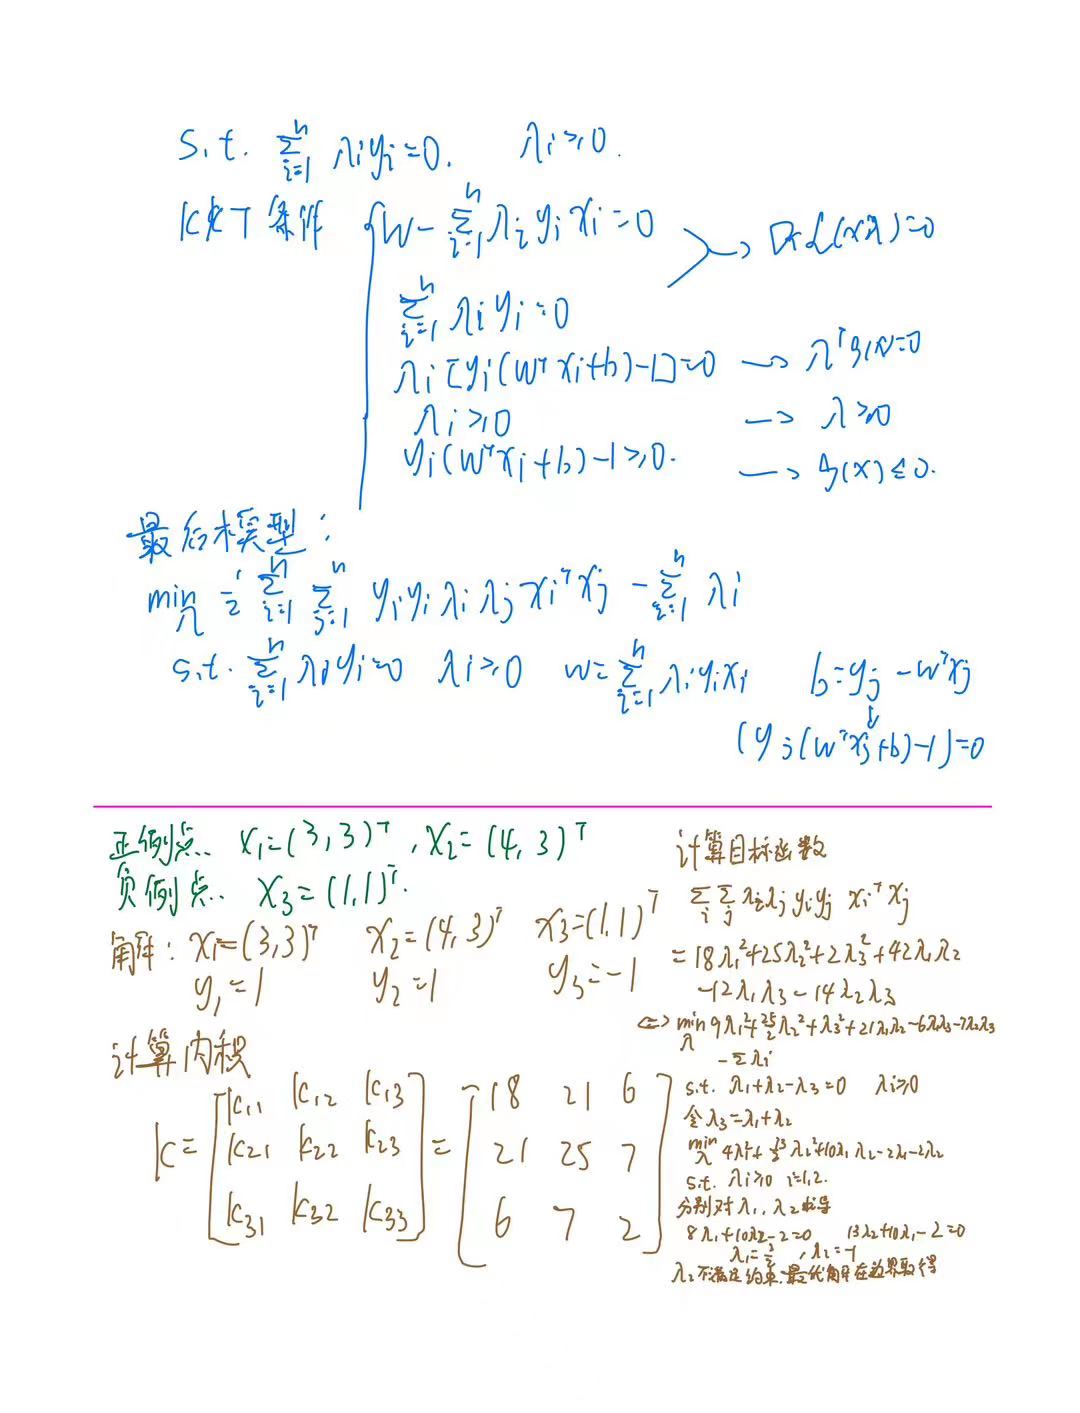 s.t. ∑_{i=1}^{n} λiyi=0. λi≥0.
KKT条件 { w-∑_{i=1}^{n} λi yi xi=0 → ∇xL(x,λ)=0
∑_{i=1}^{n} λi yi=0
λi[yi(wᵀxi+b)-1]=0 → λᵀg(x)=0
λi≥0 → λ≥0
yi(wᵀxi+b)-1≥0. → g(x)≤0.
最后模型:
min_λ ½ ∑_{i=1}^{n} ∑_{j=1}^{n} yiyi λi λj xiᵀxj - ∑_{i=1}^{n} λi
s.t. ∑_{i=1}^{n} λiyi=0 λi≥0 w=∑_{i=1}^{n} λiyixi b=yj-wᵀxj
(yj(wᵀxj+b)-1)=0
正例点. x₁=(3,3)ᵀ, x₂=(4,3)ᵀ
负例点. x₃=(1,1)ᵀ.
解: x₁=(3,3)ᵀ x₂=(4,3)ᵀ x₃=(1,1)ᵀ
y₁=1 y₂=1 y₃=-1
计算内积
K= [ k₁₁ k₁₂ k₁₃ ] = [ 18 21 6 ]
[ k₂₁ k₂₂ k₂₃ ] [ 21 25 7 ]
[ k₃₁ k₃₂ k₃₃ ] [ 6 7 2 ]
计算目标函数
∑_i ∑_j λiλj yiyj xiᵀxj
=18λ₁²+25λ₂²+2λ₃²+42λ₁λ₂
-12λ₁λ₃-14λ₂λ₃
⇔ min_λ 9λ₁²+25/2λ₂²+λ₃²+21λ₁λ₂-6λ₁λ₃-7λ₂λ₃
-∑λi
s.t. λ₁+λ₂-λ₃=0 λi≥0
令λ₃=λ₁+λ₂
min_λ 4λ₁²+13/2λ₂²+10λ₁λ₂-2λ₁-2λ₂
s.t. λi≥0 i=1,2.
分别对λ₁,λ₂求导
8λ₁+10λ₂-2=0 13λ₂+10λ₁-2=0
λ₁=3/2, λ₂=-1
λ₂不满足约束.最优解在边界取得